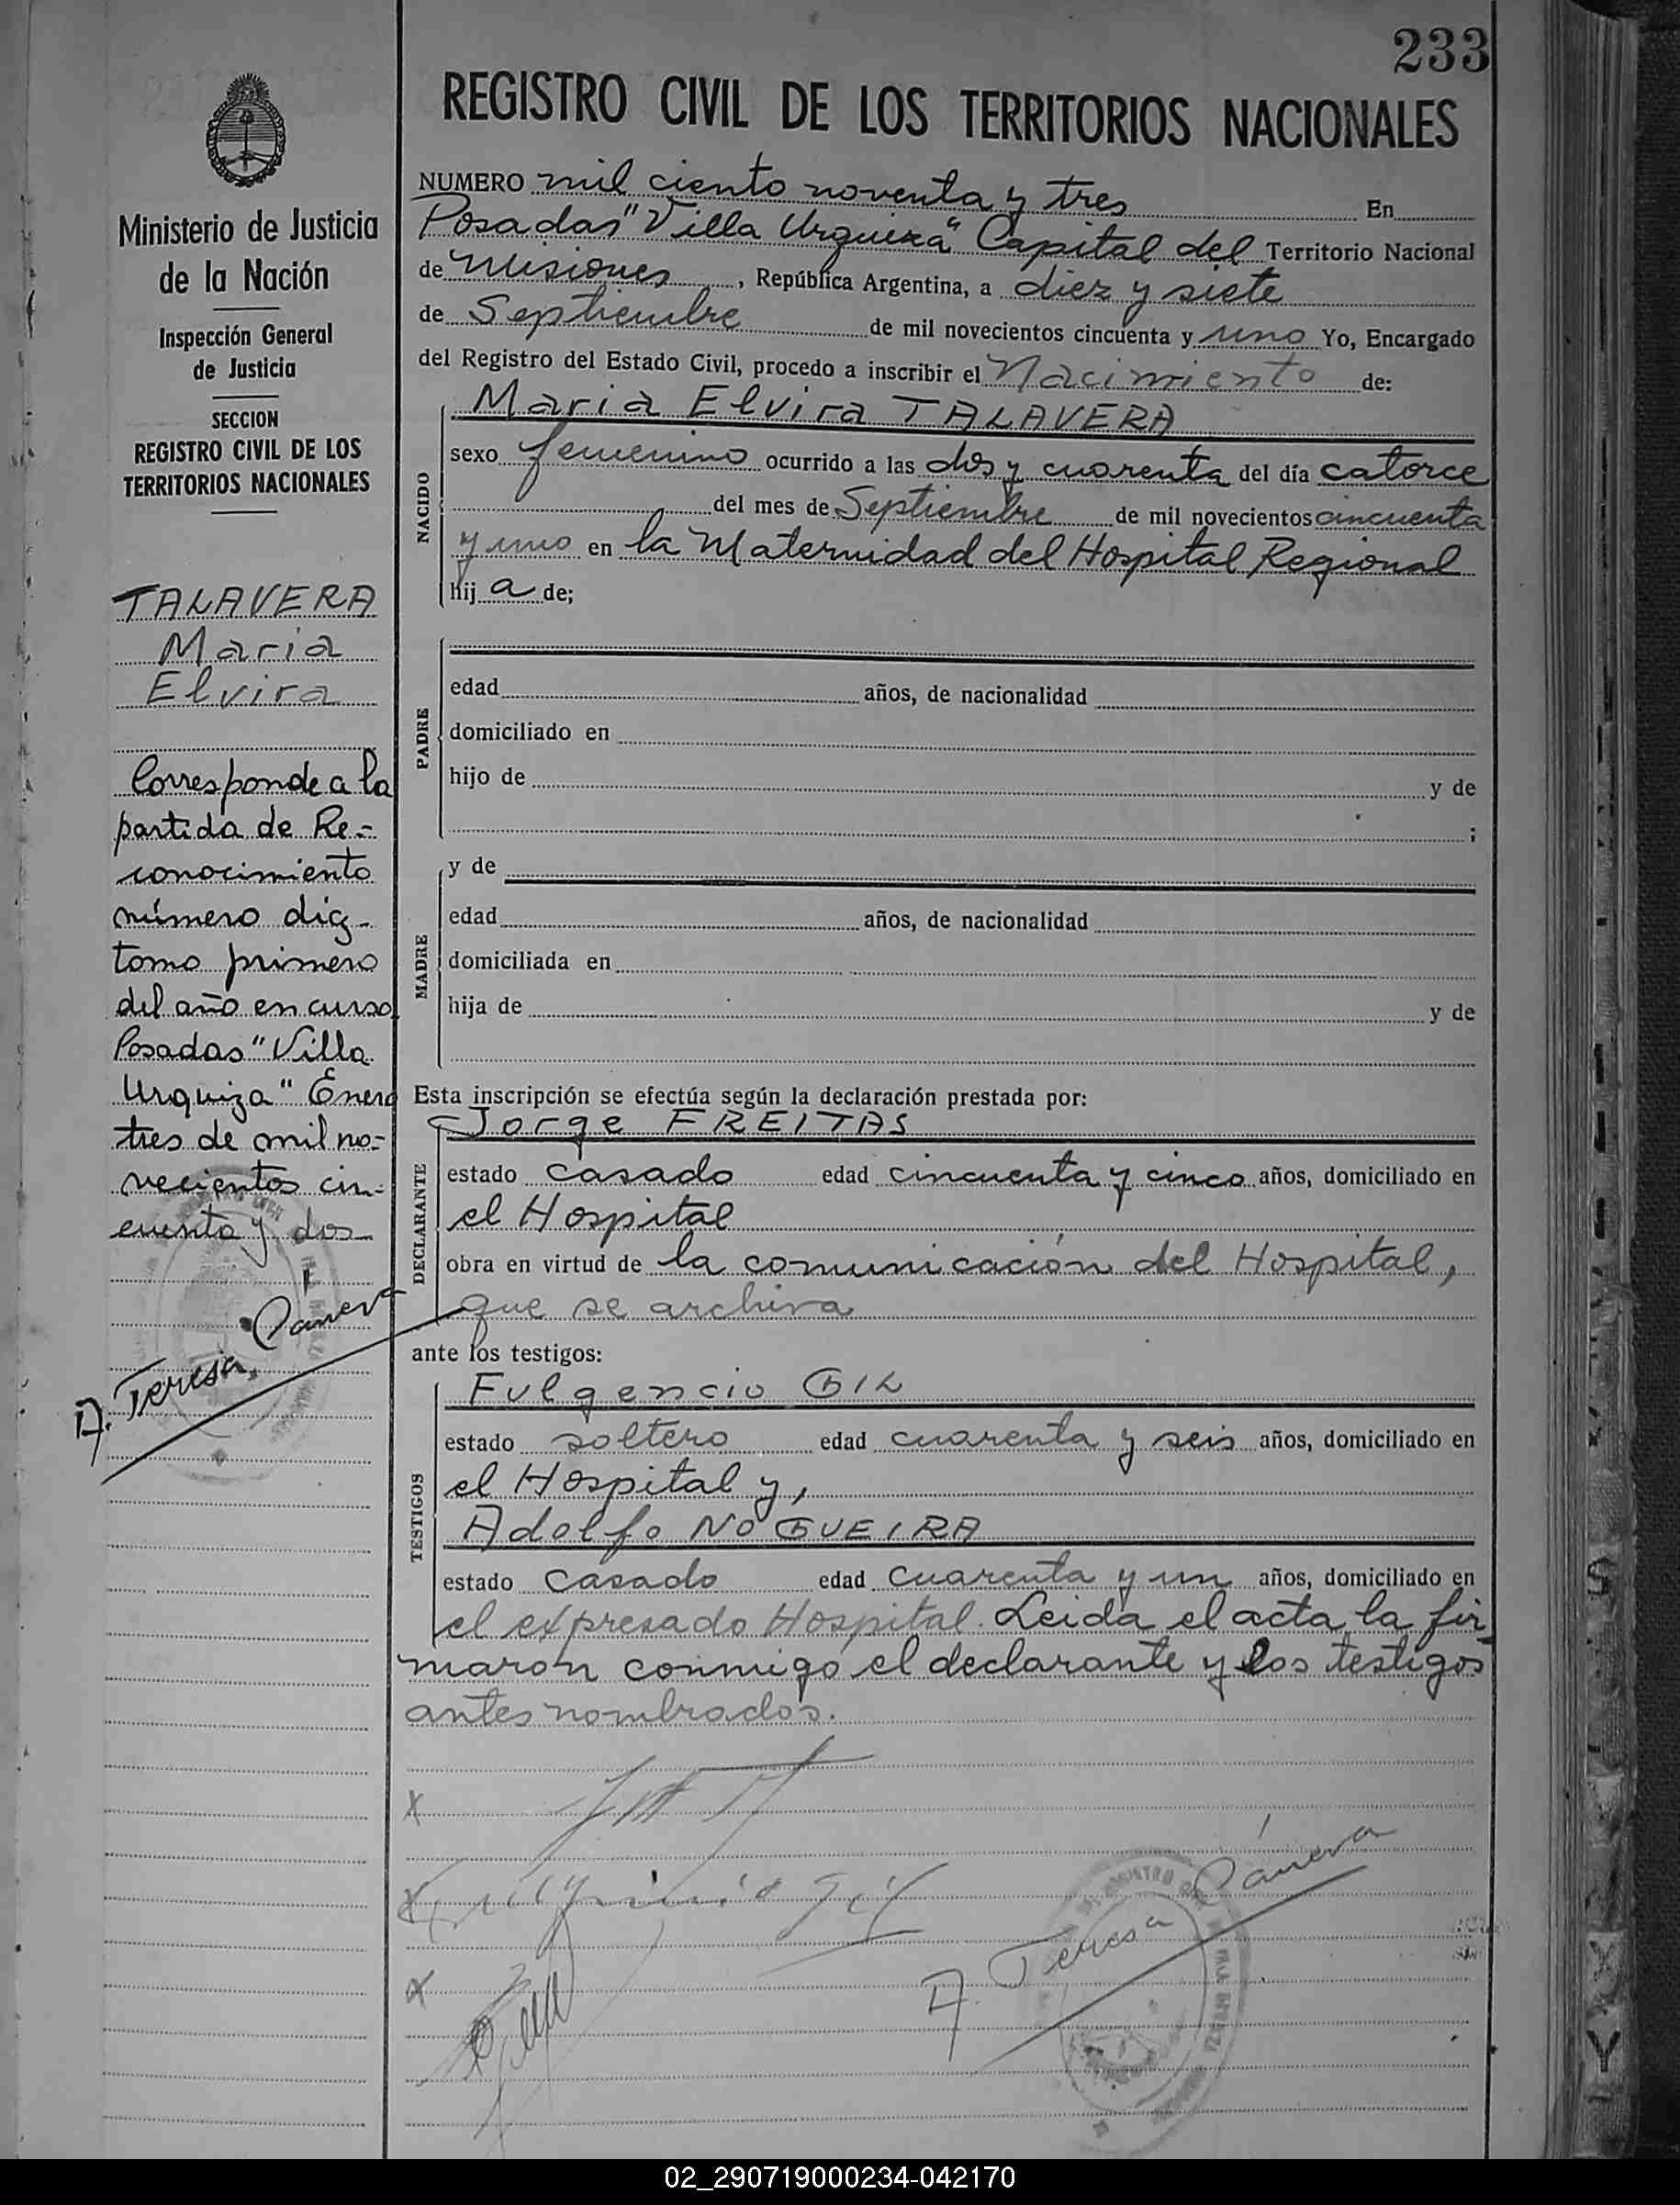 233
REGISTRO CIVIL DE LOS TERRITORIOS NACIONALES
Ministerio de Justicia
de la Nación
Inspección General
de Justicia
SECCION
REGISTRO CIVIL DE LOS
TERRITORIOS NACIONALES
TALAVERA
Maria
Elvira
Corresponde a la
partida de Re-
conocimiento
número diez
tomo primero
del año en curso
Posadas "Villa
Urquiza" Enero
tres de mil no-
vecientos cin-
cuenta y dos
A. Teresa
NUMERO mil ciento noventa y tres En
Posadas "Villa Urquiza" Capital del Territorio Nacional
de Misiones, República Argentina, a diez y siete
de Septiembre de mil novecientos cincuenta y uno Yo, Encargado
del Registro del Estado Civil, procedo a inscribir el Nacimiento de:
NACIDO
Maria Elvira TALAVERA
sexo femenino ocurrido a las dos y cuarenta del día catorce
del mes de Septiembre de mil novecientos cincuenta
y uno en la Maternidad del Hospital Regional
hij a de;
PADRE
edad años, de nacionalidad
domiciliado en
hijo de y de
;
MADRE
y de
edad años, de nacionalidad
domiciliada en
hija de y de
Esta inscripción se efectúa según la declaración prestada por:
DECLARANTE
Jorge FREITAS
estado casado edad cincuenta y cinco años, domiciliado en
el Hospital
obra en virtud de la comunicación del Hospital,
que se archiva
ante los testigos:
TESTIGOS
Fulgencio GIL
estado soltero edad cuarenta y seis años, domiciliado en
el Hospital y,
Adolfo NOGUEIRA
estado casado edad cuarenta y un años, domiciliado en
el expresado Hospital. Leida el acta la fir-
maron conmigo el declarante y los testigos
antes nombrados.
x
x Fulgencio Gil
x
A. Teresa
02_290719000234-042170